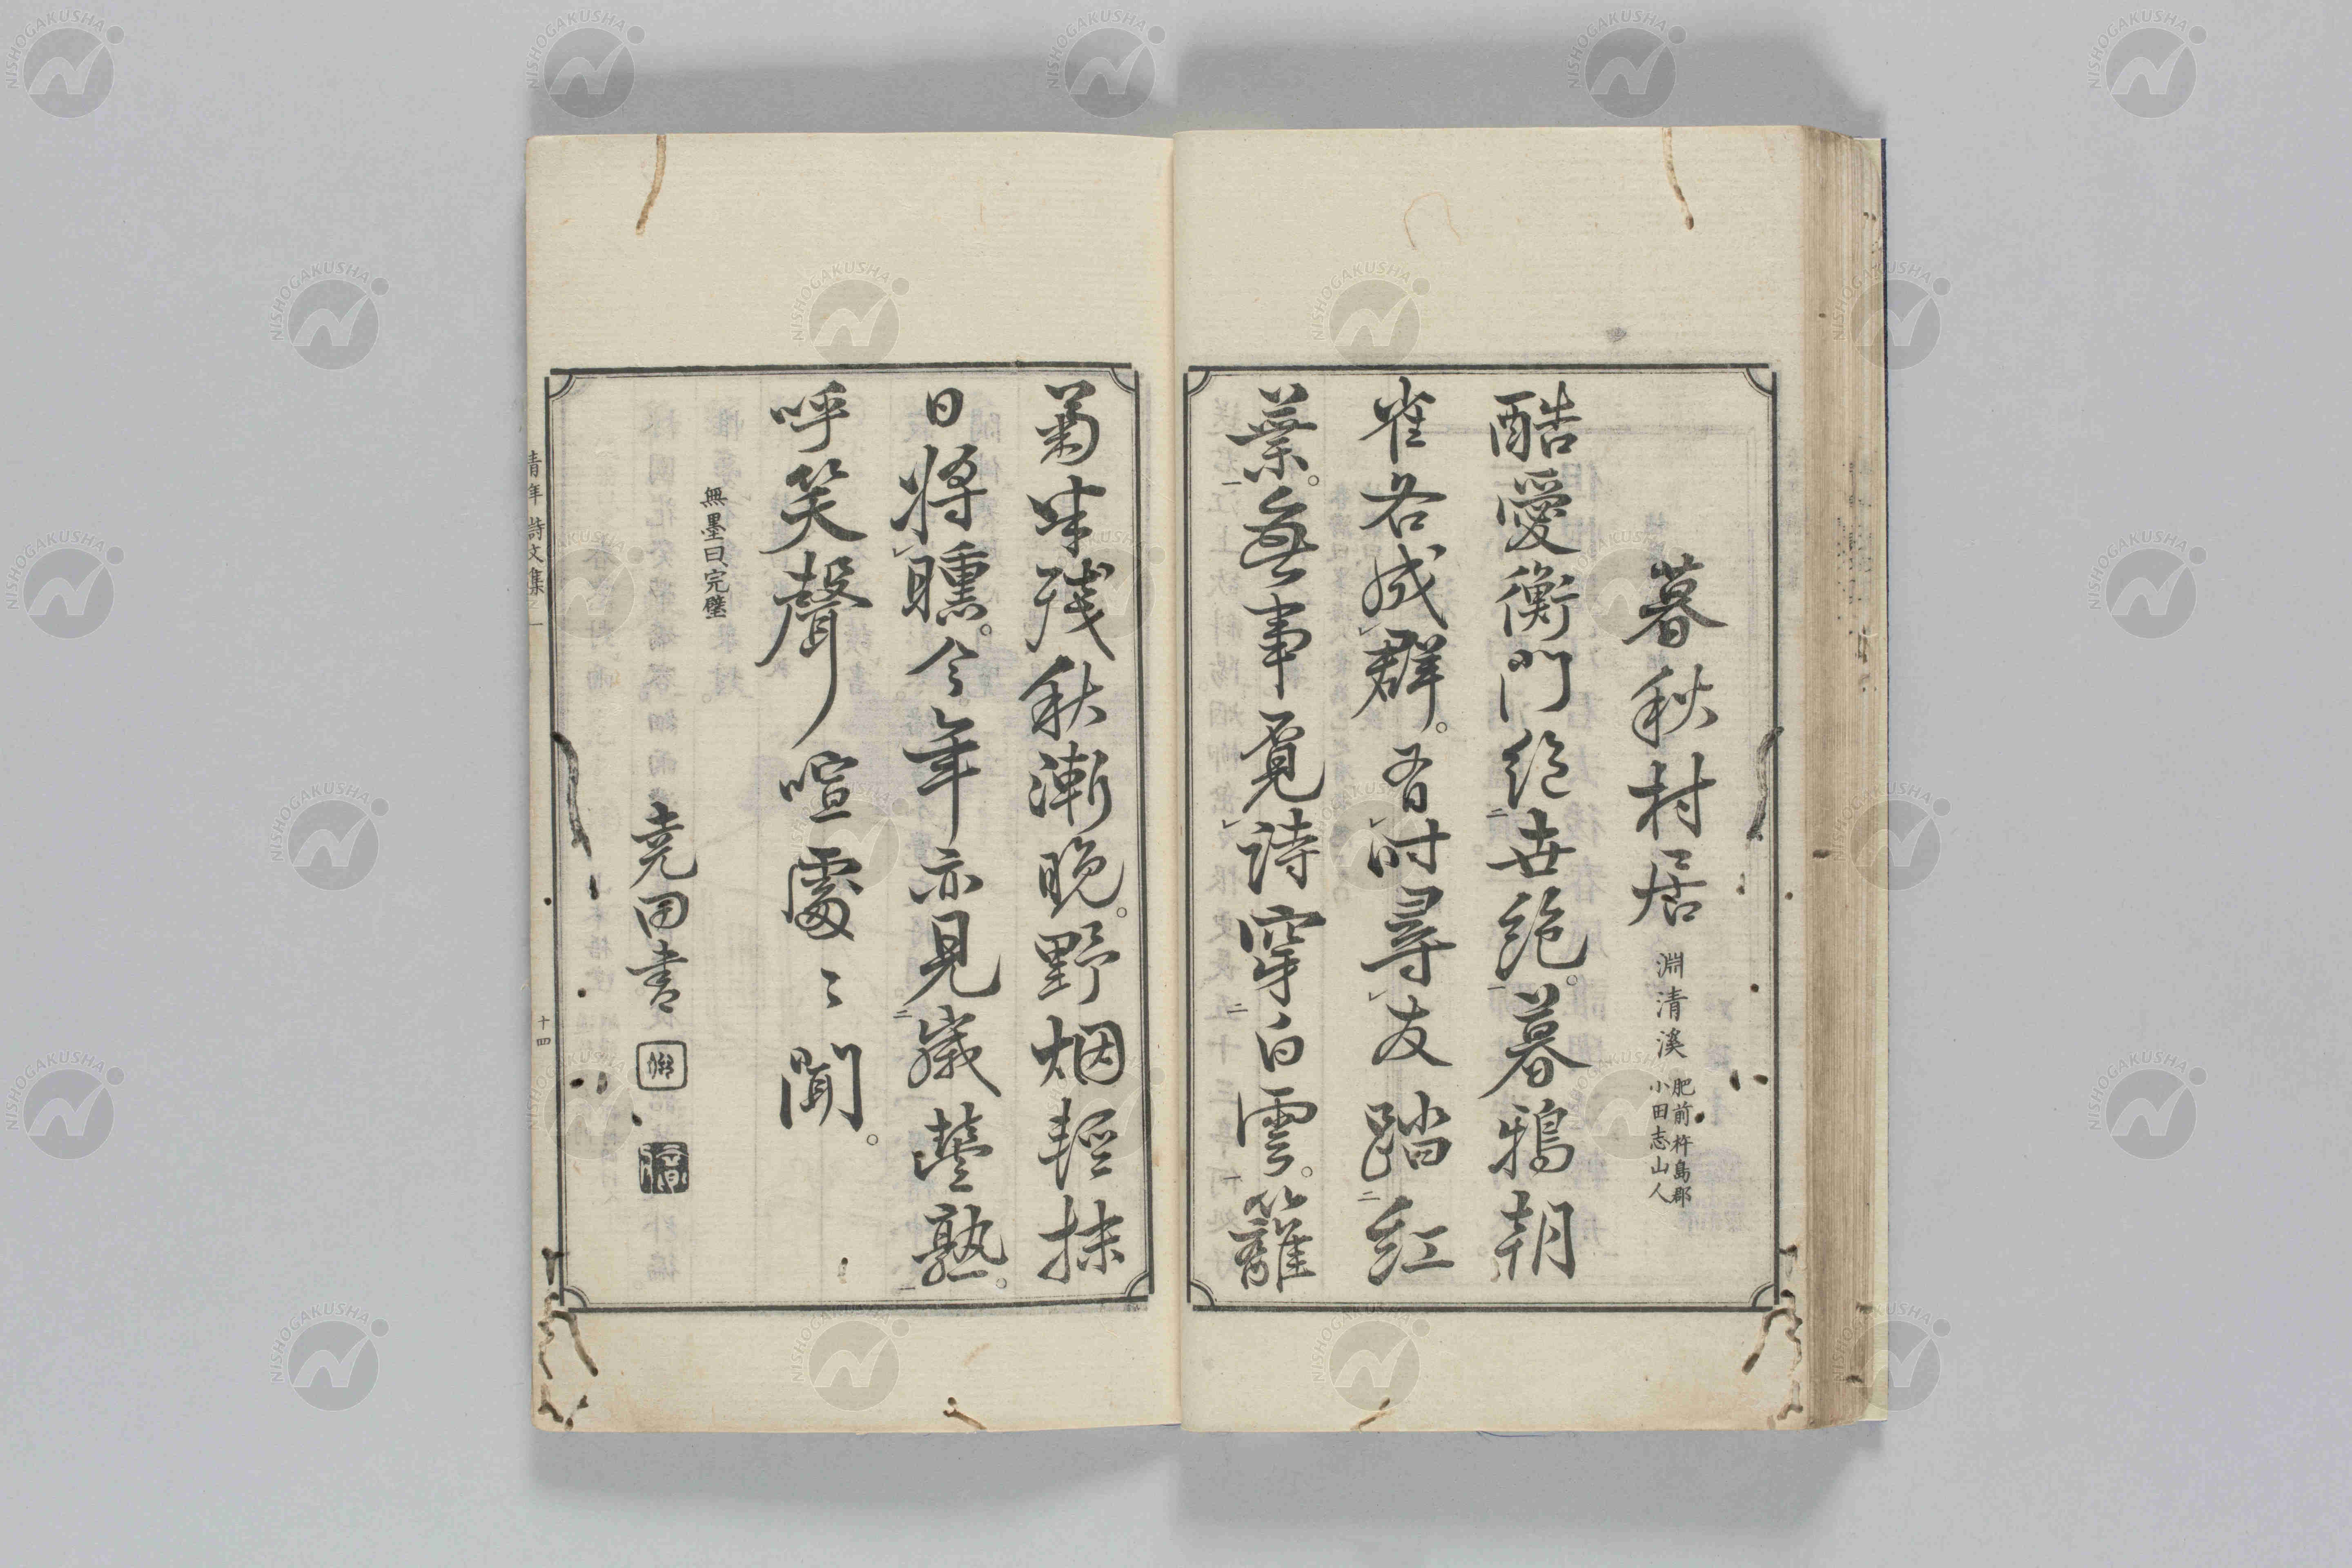 暮秋村居 淵清溪 肥前杵島郡
小田志山人
酷愛衡門絕世紛。暮鴉朝
雀各成群。有時尋友踏紅
葉。無事覓詩穿白雲。籬
菊半殘秋漸晚。野烟輕抹
日將曛。今年亦見歲豐熟。
呼笑聲喧處〻聞。
無墨曰、完璧
堯田書
青年詩文集之一
十四
NISHOGAKUSHA